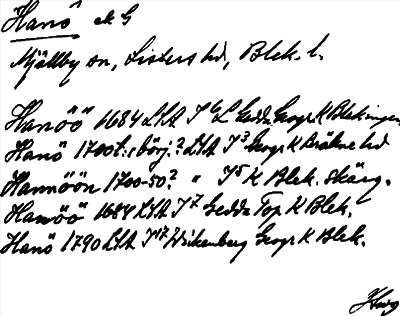 Hanö
Mjällby sn, Listers hd, Blek. l.
Hanöö 1684 LSA Gedda Geogr K Blekingen
Hanö 1700t:s börj.? LSA Geogr K Bräkne hd
Hannöön 1700-50? " K Blek. skärg.
Hanöö 1684 LSA Gedda Top K Blek.
Hanö 1790 LSA Wikenberg Geogr K Blek.